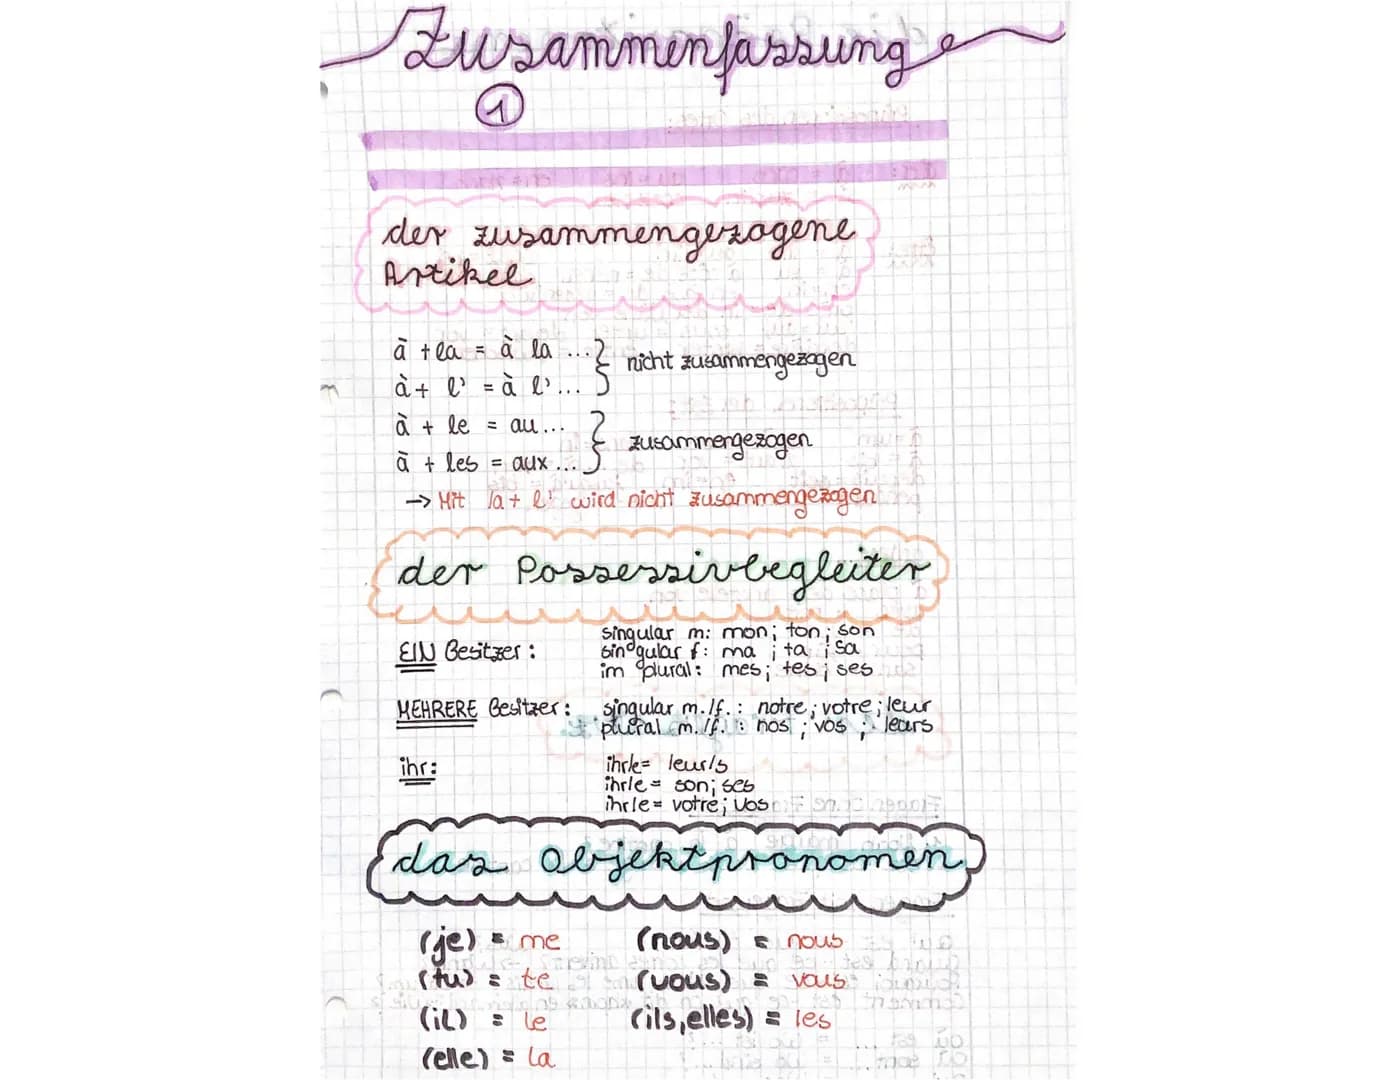 Zusammenfassung
1
der zusammengezogene
Artikel
à + la = à la ... } nicht zusammengezogen
à + l' = à l'...
à + le = au... } zusammengezogen
à + les = aux...
→ Mit la + l' wird nicht zusammengezogen
der Possessivbegleiter
EIN Besitzer: singular m: mon; ton; son
singular f: ma ; ta ; sa
im plural: mes; tes; ses
MEHRERE Besitzer: singular m./f.: notre; votre; leur
plural m./f.: nos ; vos ; leurs
ihr: ihr/e= leur/s
ihr/e= son; ses
ihr/e= votre; vos
das Objektpronomen
(je) = me (nous) = nous
(tu) = te (vous) = vous
(il) = le (ils, elles) = les
(elle) = la